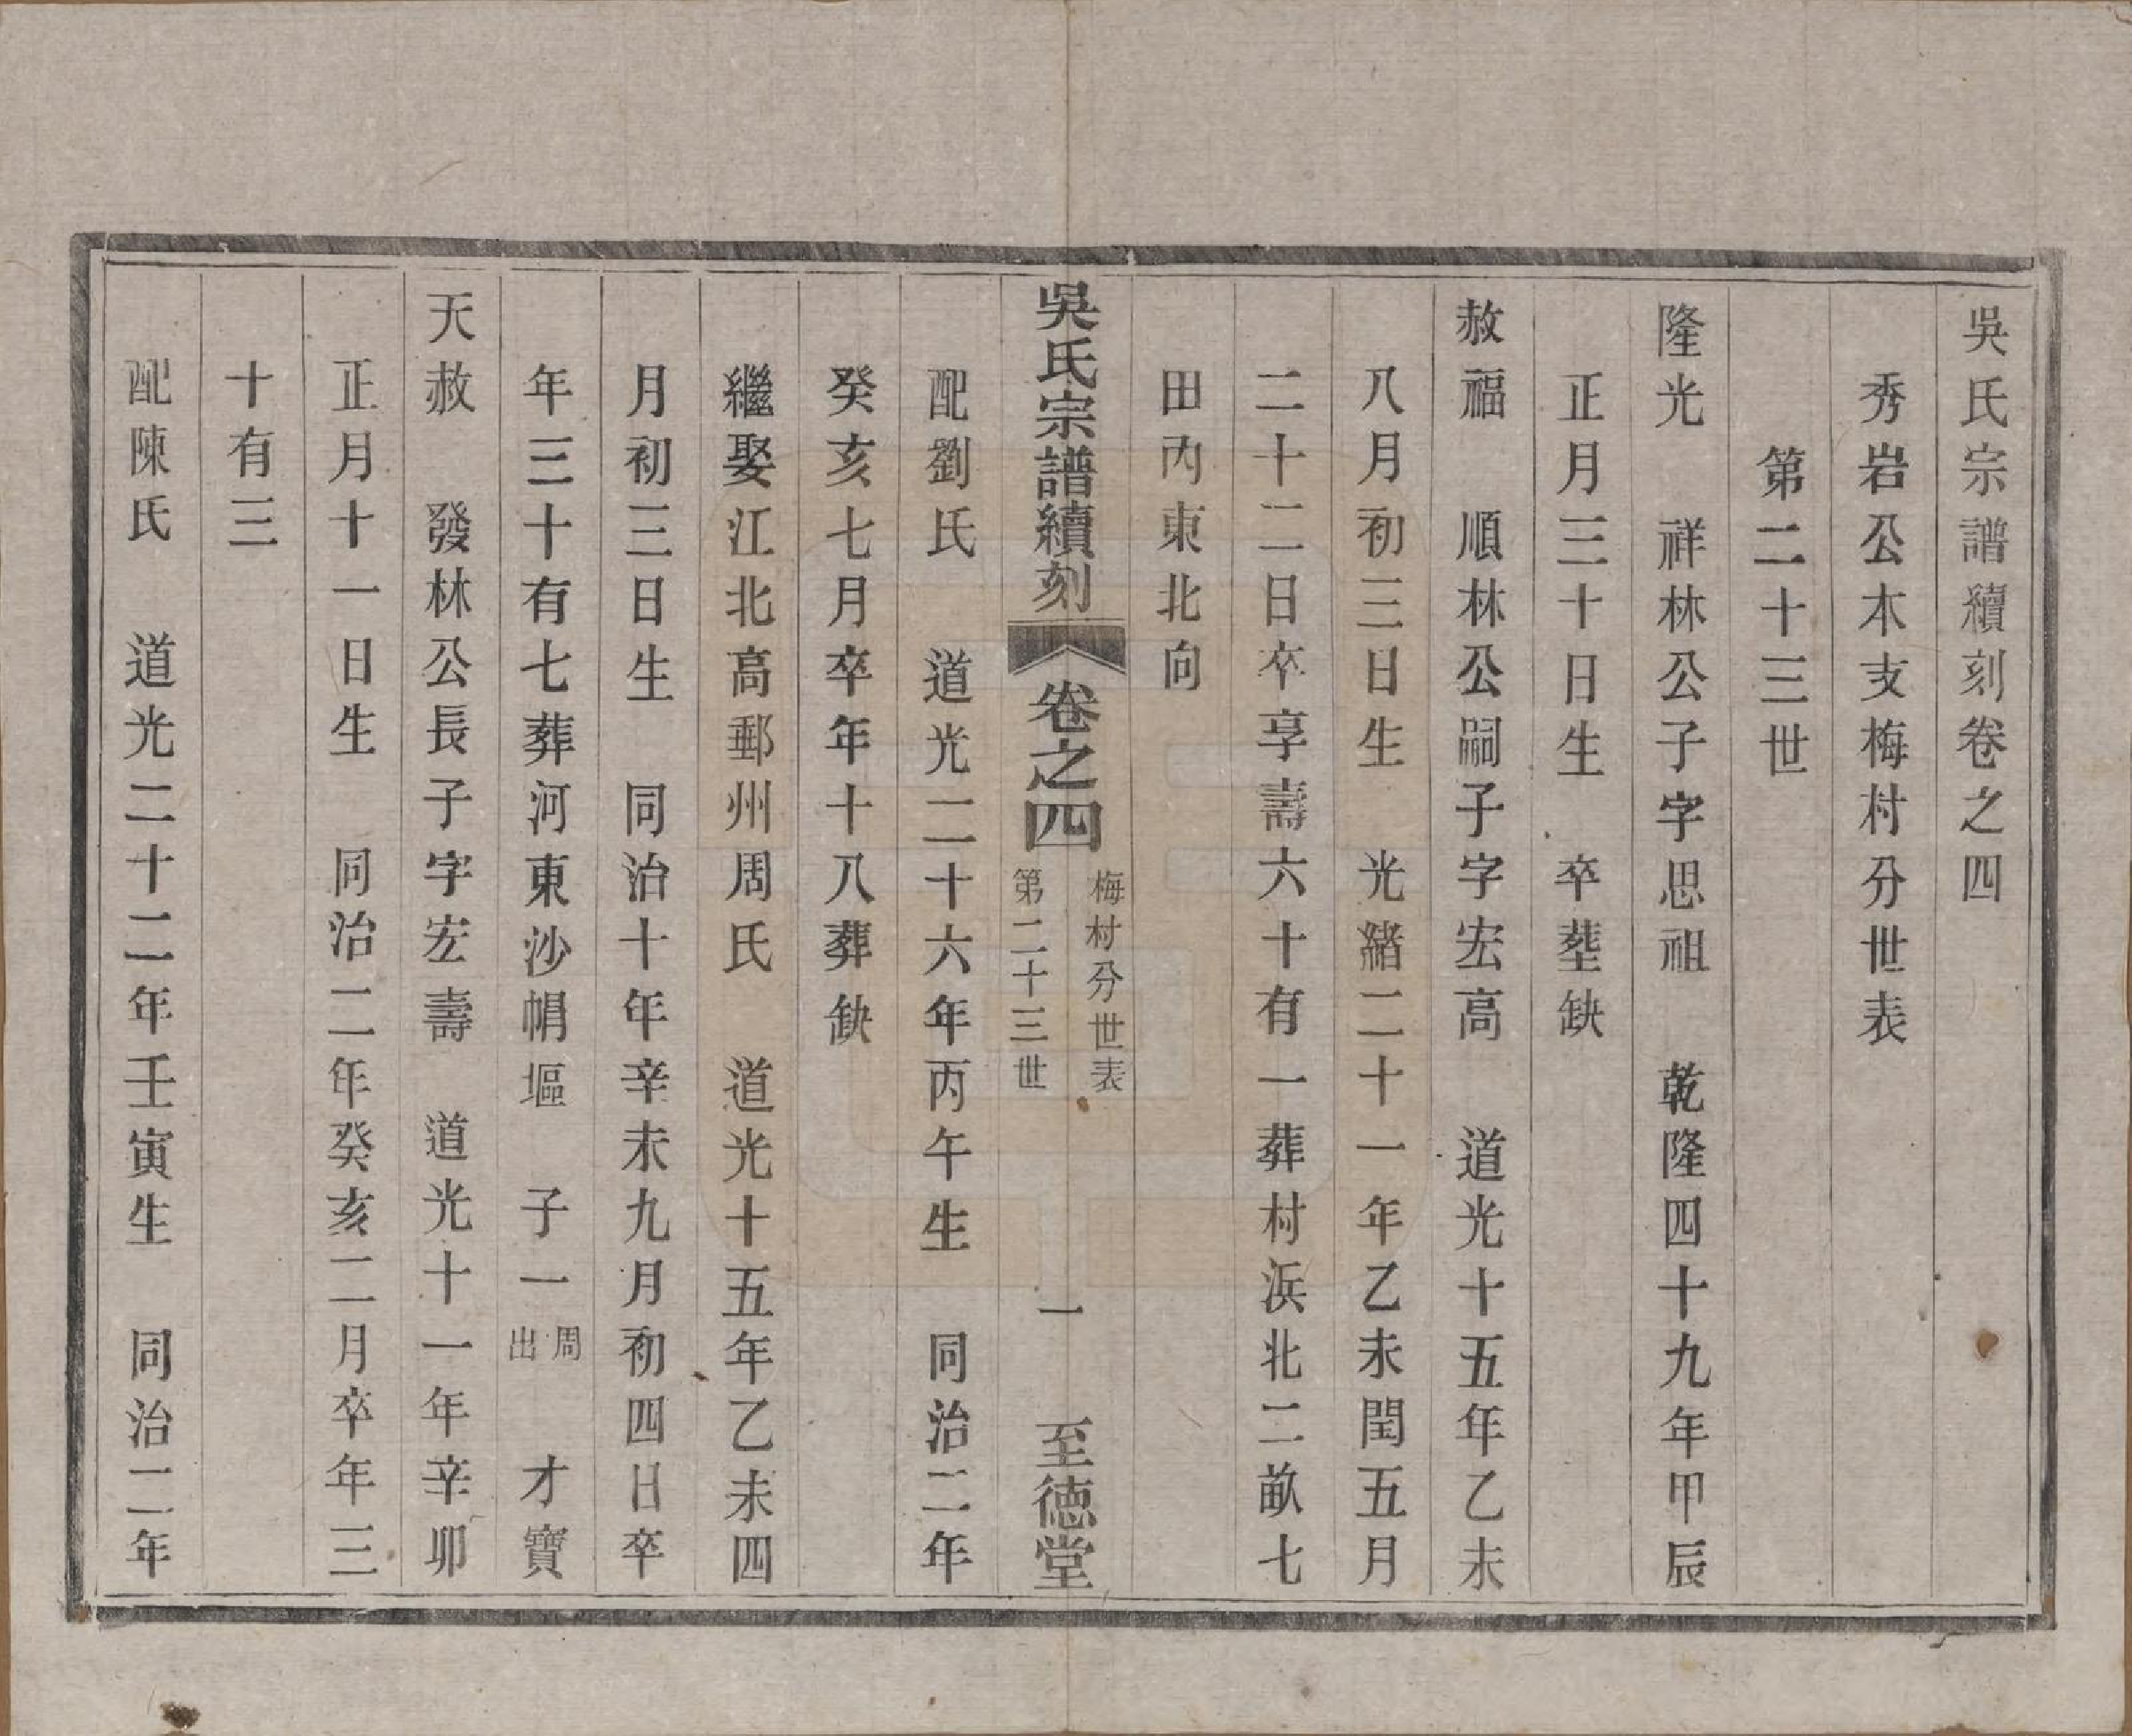 吳氏宗譜續刻卷之四
秀岩公本支梅村分世表
第二十三世
隆光　祥林公子字思祖　乾隆四十九年甲辰
正月三十日生　卒塟缺
赦福　順林公嗣子字宏高　道光十五年乙未
八月初三日生　光緒二十一年乙未閏五月
二十二日卒享壽六十有一葬村浜北二畝七
田內東北向
吳氏宗譜續刻　卷之四　梅村分世表　第二十三世　一　至德堂
配劉氏　道光二十六年丙午生　同治二年
癸亥七月卒年十八葬缺
繼娶江北高郵州周氏　道光十五年乙未四
月初三日生　同治十年辛未九月初四日卒
年三十有七葬河東沙帼塸　子一周出　才寶
天赦　發林公長子字宏壽　道光十一年辛卯
正月十一日生　同治二年癸亥二月卒年三
十有三
配陳氏　道光二十二年壬寅生　同治二年